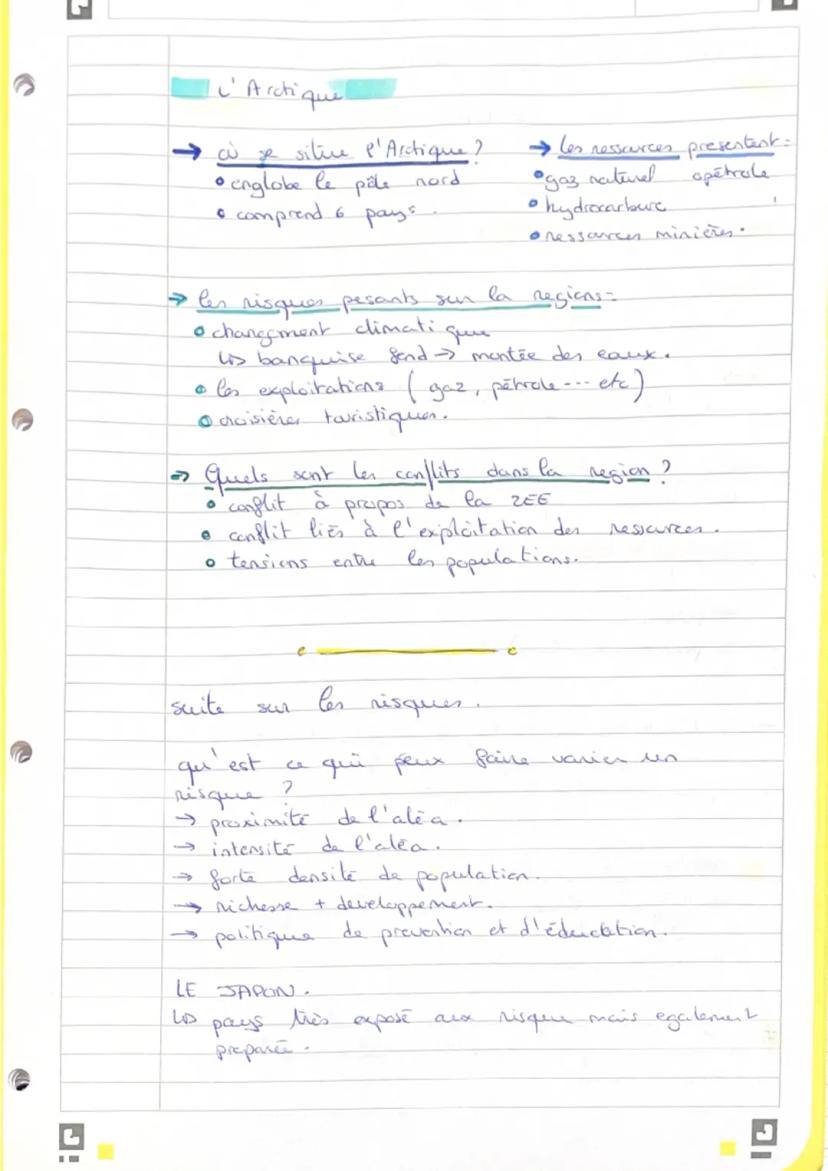 L'Arctique
→ où se situe l'Arctique ?
• englobe le pôle nord
• comprend 6 pays.
→ les ressources presentent :
• gaz naturel • pétrole
• hydrocarbure
• ressources minières.
→ les risques pesants sur la regions :
• changement climatique
↳ banquise fond → montée des eaux.
• les exploitations ( gaz, pétrole --- etc )
• croisières touristiques.
→ Quels sont les conflits dans la region ?
• conflit à propos de la ZEE
• conflit liés à l'exploitation des ressources.
• tensions entre les populations.
suite sur les risques.
qu'est ce qui peux faire varier un
risque ?
→ proximité de l'aléa.
→ intensité de l'aléa.
→ forte densité de population.
→ richesse + developpement.
→ politique de prevention et d'éducation.
LE JAPON.
↳ pays très exposé aux risque mais egalement
preparé.